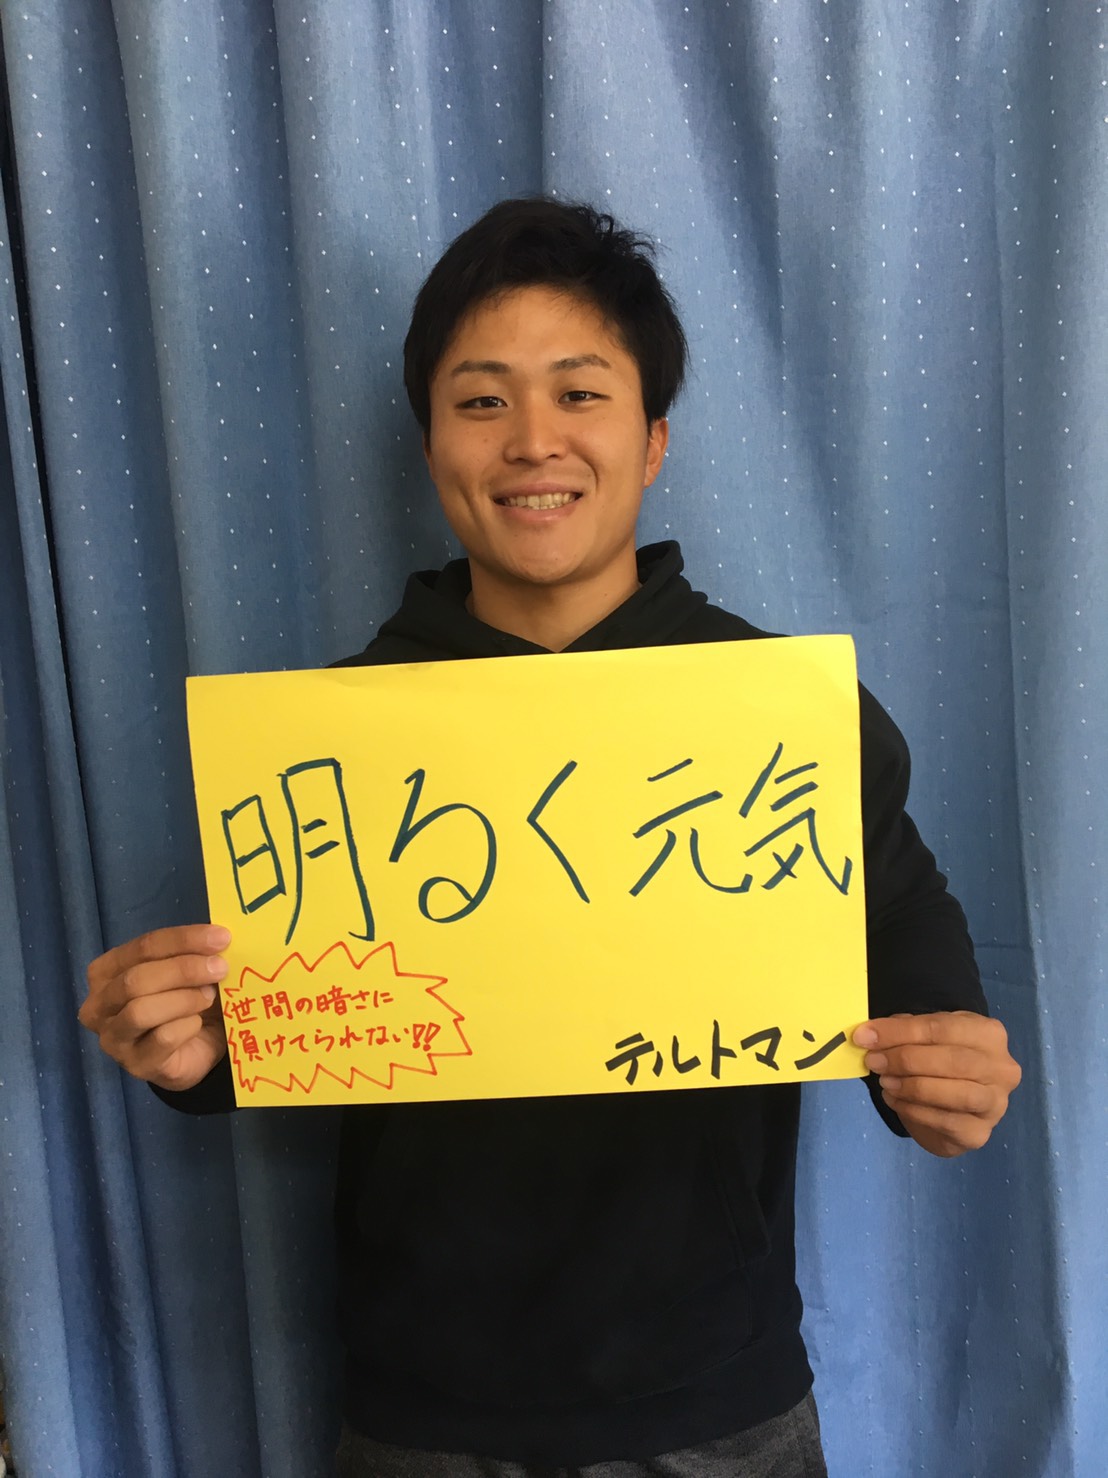 明るく元気
世間の暗さに
負けてられない!!
テルトマン